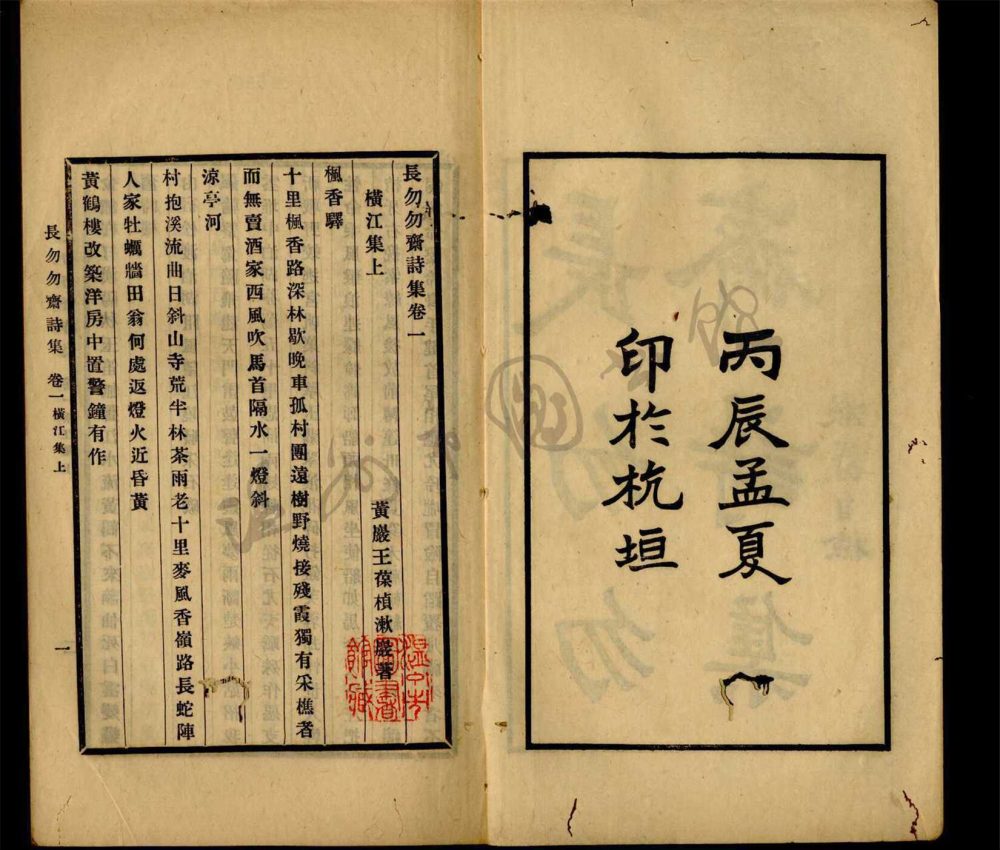 丙辰孟夏
印於杭垣
長勿勿齋詩集卷一
橫江集上
黃巖王葆楨漱巖著
楓香驛
十里楓香路深林歇晚車孤村團遠樹野燒接殘霞獨有采樵者
而無賣酒家西風吹馬首隔水一燈斜
涼亭河
村抱溪流曲日斜山寺荒半林茶雨老十里麥風香嶺路長蛇陣
人家牡蠣牆田翁何處返燈火近昏黃
黃鶴樓改築洋房中置警鐘有作
長勿勿齋詩集 卷一橫江集上
一
溫州市
圖書
館藏